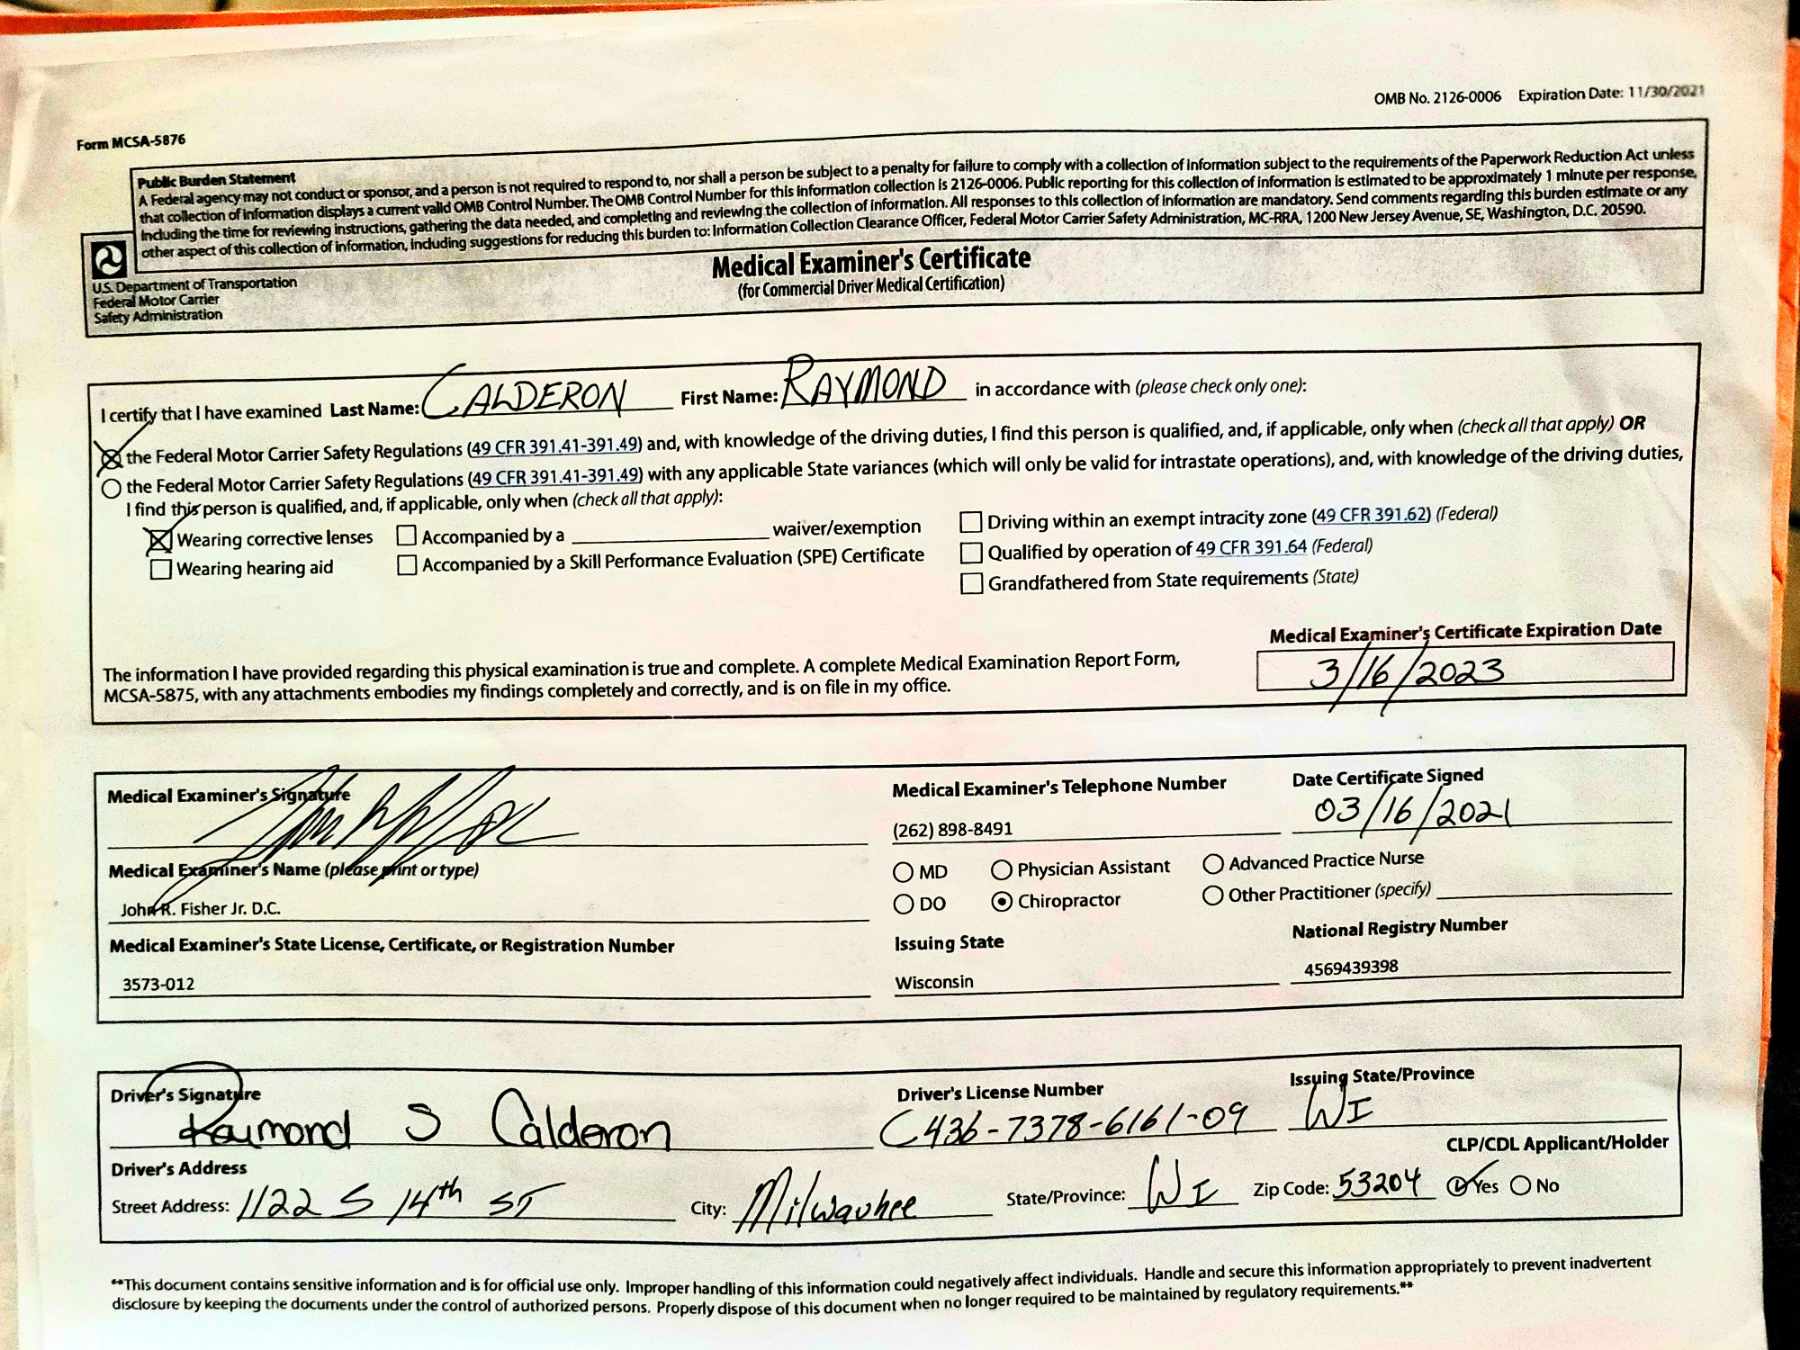 OMB No. 2126-0006 Expiration Date: 11/30/2021
Form MCSA-5876
Public Burden Statement
A Federal agency may not conduct or sponsor, and a person is not required to respond to, nor shall a person be subject to a penalty for failure to comply with a collection of information subject to the requirements of the Paperwork Reduction Act unless
that collection of information displays a current valid OMB Control Number. The OMB Control Number for this information collection is 2126-0006. Public reporting for this collection of information is estimated to be approximately 1 minute per response,
including the time for reviewing instructions, gathering the data needed, and completing and reviewing the collection of information. All responses to this collection of information are mandatory. Send comments regarding this burden estimate or any
other aspect of this collection of information, including suggestions for reducing this burden to: Information Collection Clearance Officer, Federal Motor Carrier Safety Administration, MC-RRA, 1200 New Jersey Avenue, SE, Washington, D.C. 20590.
U.S. Department of Transportation
Federal Motor Carrier
Safety Administration
Medical Examiner's Certificate
(for Commercial Driver Medical Certification)
I certify that I have examined Last Name: CALDERON First Name: RAYMOND in accordance with (please check only one):
the Federal Motor Carrier Safety Regulations (49 CFR 391.41-391.49) and, with knowledge of the driving duties, I find this person is qualified, and, if applicable, only when (check all that apply) OR
the Federal Motor Carrier Safety Regulations (49 CFR 391.41-391.49) with any applicable State variances (which will only be valid for intrastate operations), and, with knowledge of the driving duties,
I find this person is qualified, and, if applicable, only when (check all that apply):
Wearing corrective lenses Accompanied by a waiver/exemption Driving within an exempt intracity zone (49 CFR 391.62) (Federal)
Wearing hearing aid Accompanied by a Skill Performance Evaluation (SPE) Certificate Qualified by operation of 49 CFR 391.64 (Federal)
Grandfathered from State requirements (State)
Medical Examiner's Certificate Expiration Date
The information I have provided regarding this physical examination is true and complete. A complete Medical Examination Report Form, 3/16/2023
MCSA-5875, with any attachments embodies my findings completely and correctly, and is on file in my office.
Medical Examiner's Signature Medical Examiner's Telephone Number Date Certificate Signed
(262) 898-8491 03/16/2021
Medical Examiner's Name (please print or type) MD Physician Assistant Advanced Practice Nurse
John R. Fisher Jr. D.C. DO Chiropractor Other Practitioner (specify)
Medical Examiner's State License, Certificate, or Registration Number Issuing State National Registry Number
3573-012 Wisconsin 4569439398
Driver's Signature Driver's License Number Issuing State/Province
Raymond S Calderon C436-7378-6161-09 WI
Driver's Address CLP/CDL Applicant/Holder
Street Address: 1122 S 14th ST City: Milwaukee State/Province: WI Zip Code: 53204 Yes No
**This document contains sensitive information and is for official use only. Improper handling of this information could negatively affect individuals. Handle and secure this information appropriately to prevent inadvertent
disclosure by keeping the documents under the control of authorized persons. Properly dispose of this document when no longer required to be maintained by regulatory requirements.**